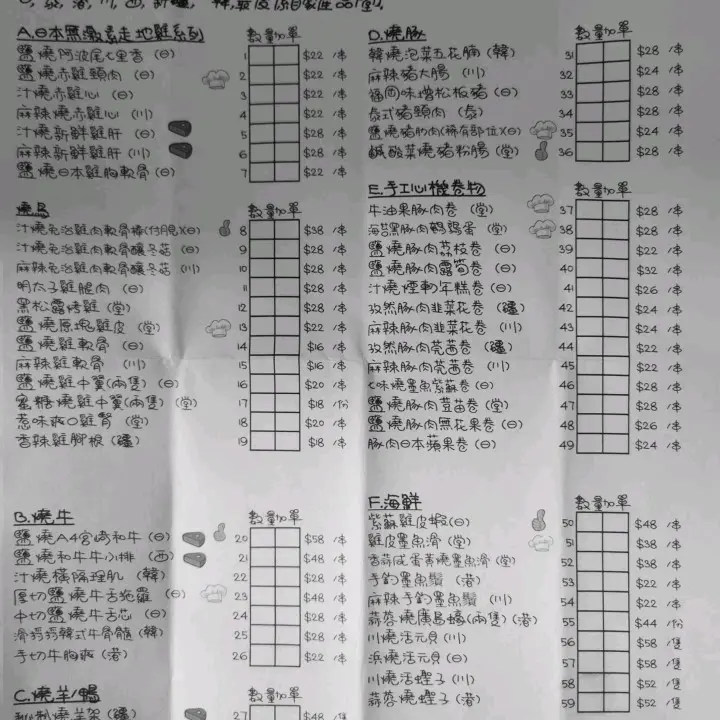 A.日本無激素走地雞系列 數量加單
鹽燒阿波尾七里香 (日) 1 $22 /串
鹽燒赤雞頸肉 (日) 2 $22 /串
汁燒赤雞心 (日) 3 $22 /串
麻辣燒赤雞心 (川) 4 $22 /串
汁燒新鮮雞肝 (日) 5 $28 /串
麻辣新鮮雞肝 (川) 6 $28 /串
鹽燒日本雞胸軟骨 (日) 7 $22 /串
燒鳥 數量加單
汁燒免治雞肉軟骨棒 (日) 8 $38 /串
汁燒免治雞肉軟骨釀冬菇 (日) 9 $28 /串
麻辣免治雞肉軟骨釀冬菇 (川) 10 $28 /串
明太子雞腿肉 (日) 11 $28 /串
黑松露烤雞 (堂) 12 $28 /串
鹽燒原塊雞皮 (堂) 13 $22 /串
鹽燒雞軟骨 (日) 14 $16 /串
麻辣雞軟骨 (川) 15 $16 /串
鹽燒雞中翼(兩隻) (日) 16 $20 /串
蜜糖燒雞中翼(兩隻) (堂) 17 $18 /份
惹味 雞腎 (堂) 18 $20 /串
香辣雞腳根 (疆) 19 $18 /串
B.燒牛 數量加單
鹽燒A4宮崎和牛 (日) 20 $58 /串
鹽燒和牛牛小排 (西) 21 $48 /串
汁燒橫隔裡肌 (韓) 22 $28 /串
厚切鹽燒牛舌 (日) 23 $48 /串
中切鹽燒牛舌芯 (日) 24 $28 /串
滑 韓式牛骨髓 (韓) 25 $28 /串
手切牛胸爽 (港) 26 $22 /串
C.燒羊/鴨 數量加單
燒羊架 (疆) 27 $48 /隻
D.燒豚 數量加單
韓燒泡菜五花腩 (韓) 31 $28 /串
麻辣豬大腸 (川) 32 $24 /串
福岡味噌松板豬 (日) 33 $28 /串
泰式豬頸肉 (泰) 34 $28 /串
鹽燒豬 肉(稀有部位)(日) 35 $24 /串
鹹酸菜燒豬粉腸 (堂) 36 $28 /串
E.手工心機卷物 數量加單
牛油果豚肉卷 (堂) 37 $28 /串
海苔黑豚肉鵪鶉蛋 (堂) 38 $28 /串
鹽燒豚肉荔枝卷 (日) 39 $22 /串
鹽燒豚肉露筍卷 (日) 40 $32 /串
汁燒煙 年糕卷 (日) 41 $26 /串
孜然豚肉韭菜花卷 (疆) 42 $24 /串
麻辣豚肉韭菜花卷 (川) 43 $24 /串
孜然豚肉芫茜卷 (疆) 44 $22 /串
麻辣豚肉芫茜卷 (川) 45 $22 /串
七味燒墨魚紫蘇卷 (日) 46 $28 /串
鹽燒豚肉荳苗卷 (堂) 47 $28 /串
鹽燒豚肉無花果卷 (日) 48 $26 /串
豚肉日本蘋果卷 (日) 49 $24 /串
F.海鮮 數量加單
紫蘇雞皮蝦(日) 50 $48 /串
雞皮墨魚滑 (堂) 51 $38 /串
香蒜咸蛋黃燒墨魚滑 (堂) 52 $38 /串
手釣墨魚鬚 (港) 53 $22 /串
麻辣手釣墨魚鬚 (川) 54 $22 /串
蒜蓉燒廣島蠔(兩隻) (港) 55 $44 /份
川燒活元貝 (川) 56 $58 /隻
浜燒活元貝 (日) 57 $58 /隻
川燒活蟶子 (川) 58 $52 /隻
蒜蓉燒蟶子 (港) 59 $52 /隻